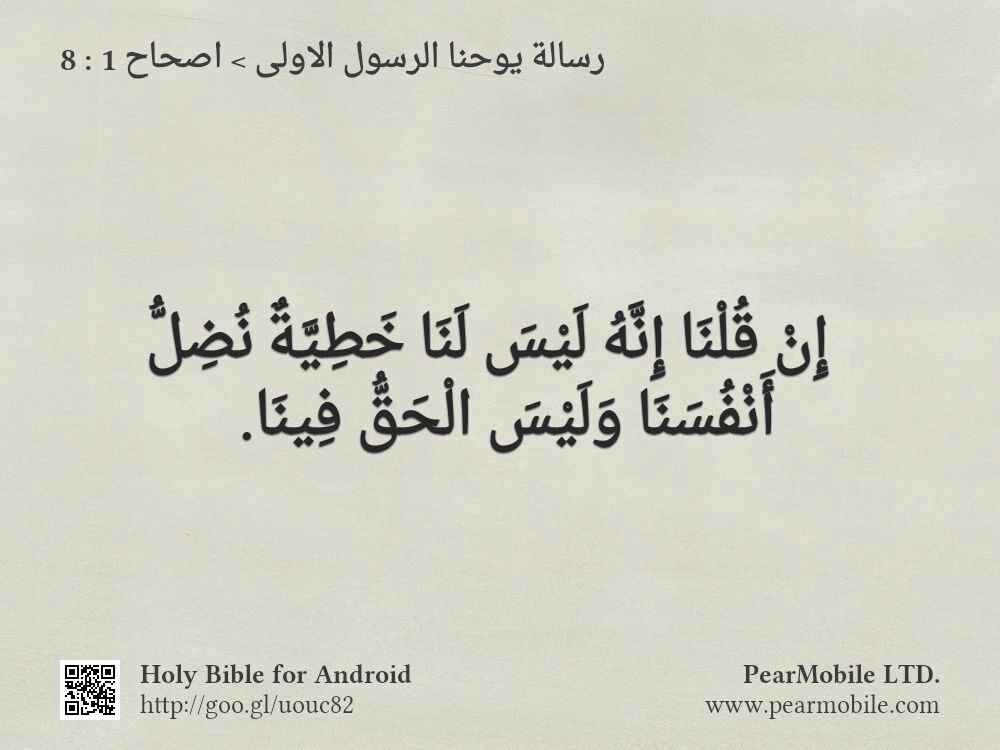 رسالة يوحنا الرسول الاولى > اصحاح 1 : 8
إِنْ قُلْنَا إِنَّهُ لَيْسَ لَنَا خَطِيَّةٌ نُضِلُّ
أَنْفُسَنَا وَلَيْسَ الْحَقُّ فِينَا.
Holy Bible for Android
http://goo.gl/uouc82
PearMobile LTD.
www.pearmobile.com